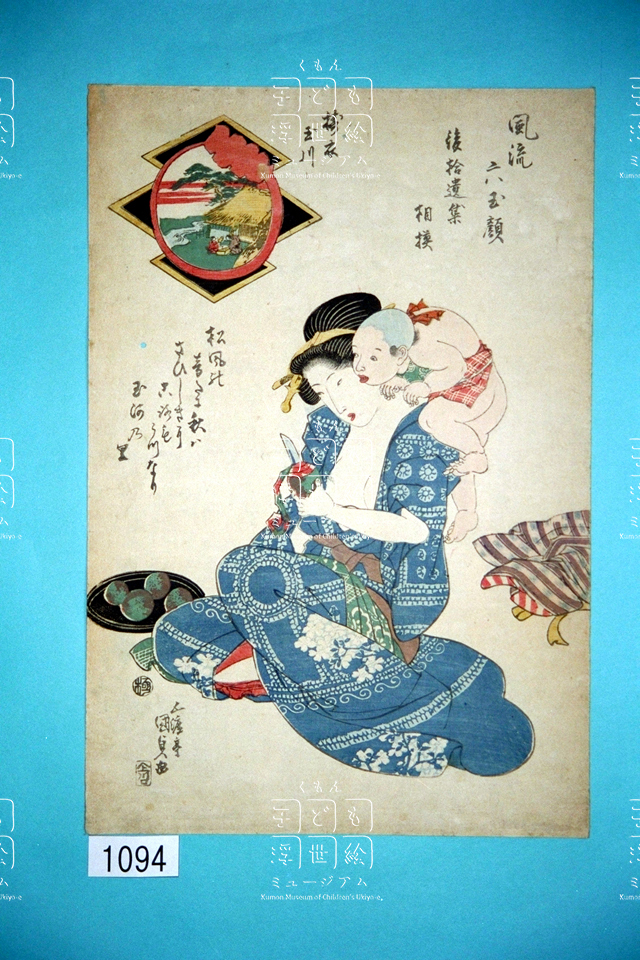 風流
六玉顔
後拾遺集
相摸
擣衣
玉川
松風の
音だに秋は
さびしきに
衣うつなり
玉河の
里
五渡亭
國貞画
極
1094
くもん
子ども
浮世絵
ミュージアム
Kumon Museum of Children's Ukiyo-e.